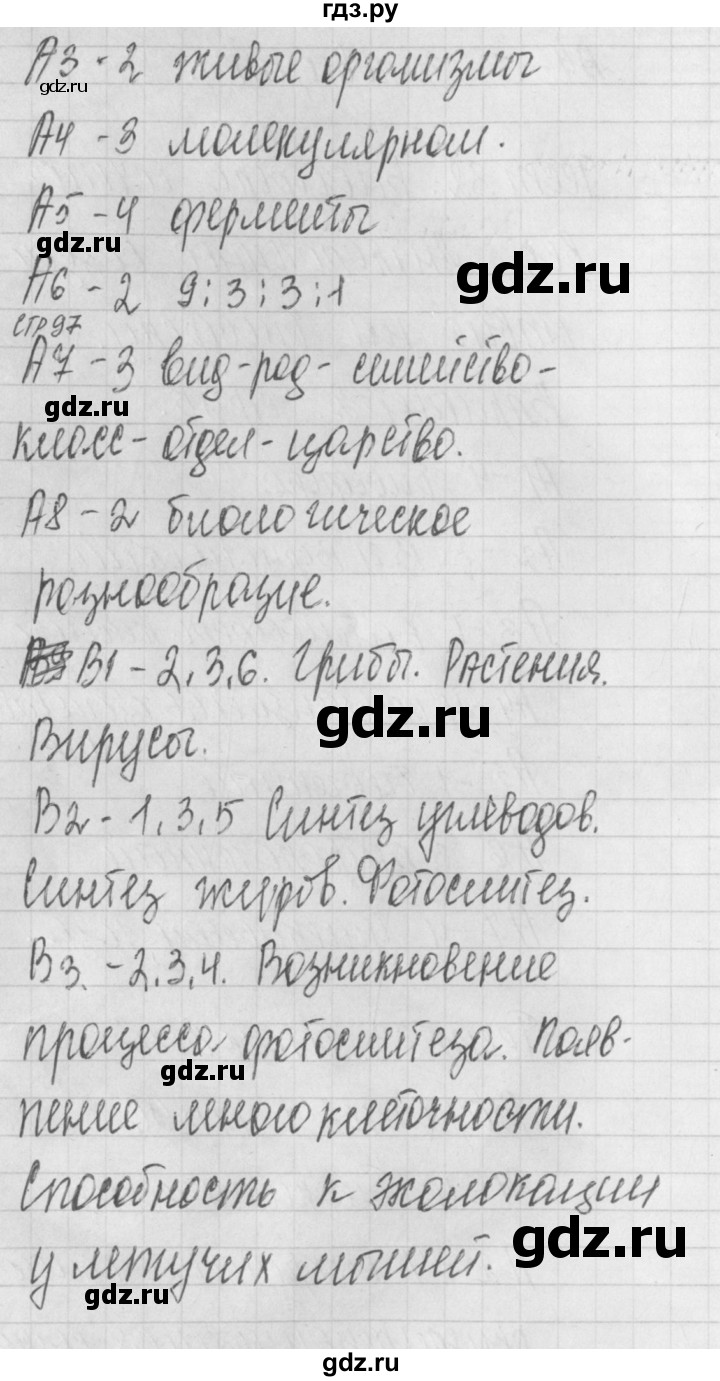 гдз.ру
А3 - 2 живые организмы
gdz.ru
А4 - 3 молекулярном.
А5 - 4 ферменты
gdz.ru
gdz.ru
А6 - 2 9:3:3:1
стр 97
А7 - 3 вид-род- семейство-
gdz.ru
класс- отдел - царство.
А8 - 2 биологическое
разнообразие.
В1 - 2,3,6. Грибы. Растения.
gdz.ru
Вирусы.
В2 - 1,3,5 Синтез углеводов.
Синтез жиров. Фотосинтез.
В3. - 2,3,4. Возникновение
процесса фотосинтеза. Появ-
gdz.ru
ление многоклеточности.
Способность к эхолокации
gdz.ru
у летучих мышей.
gdz.ru
gdz.ru